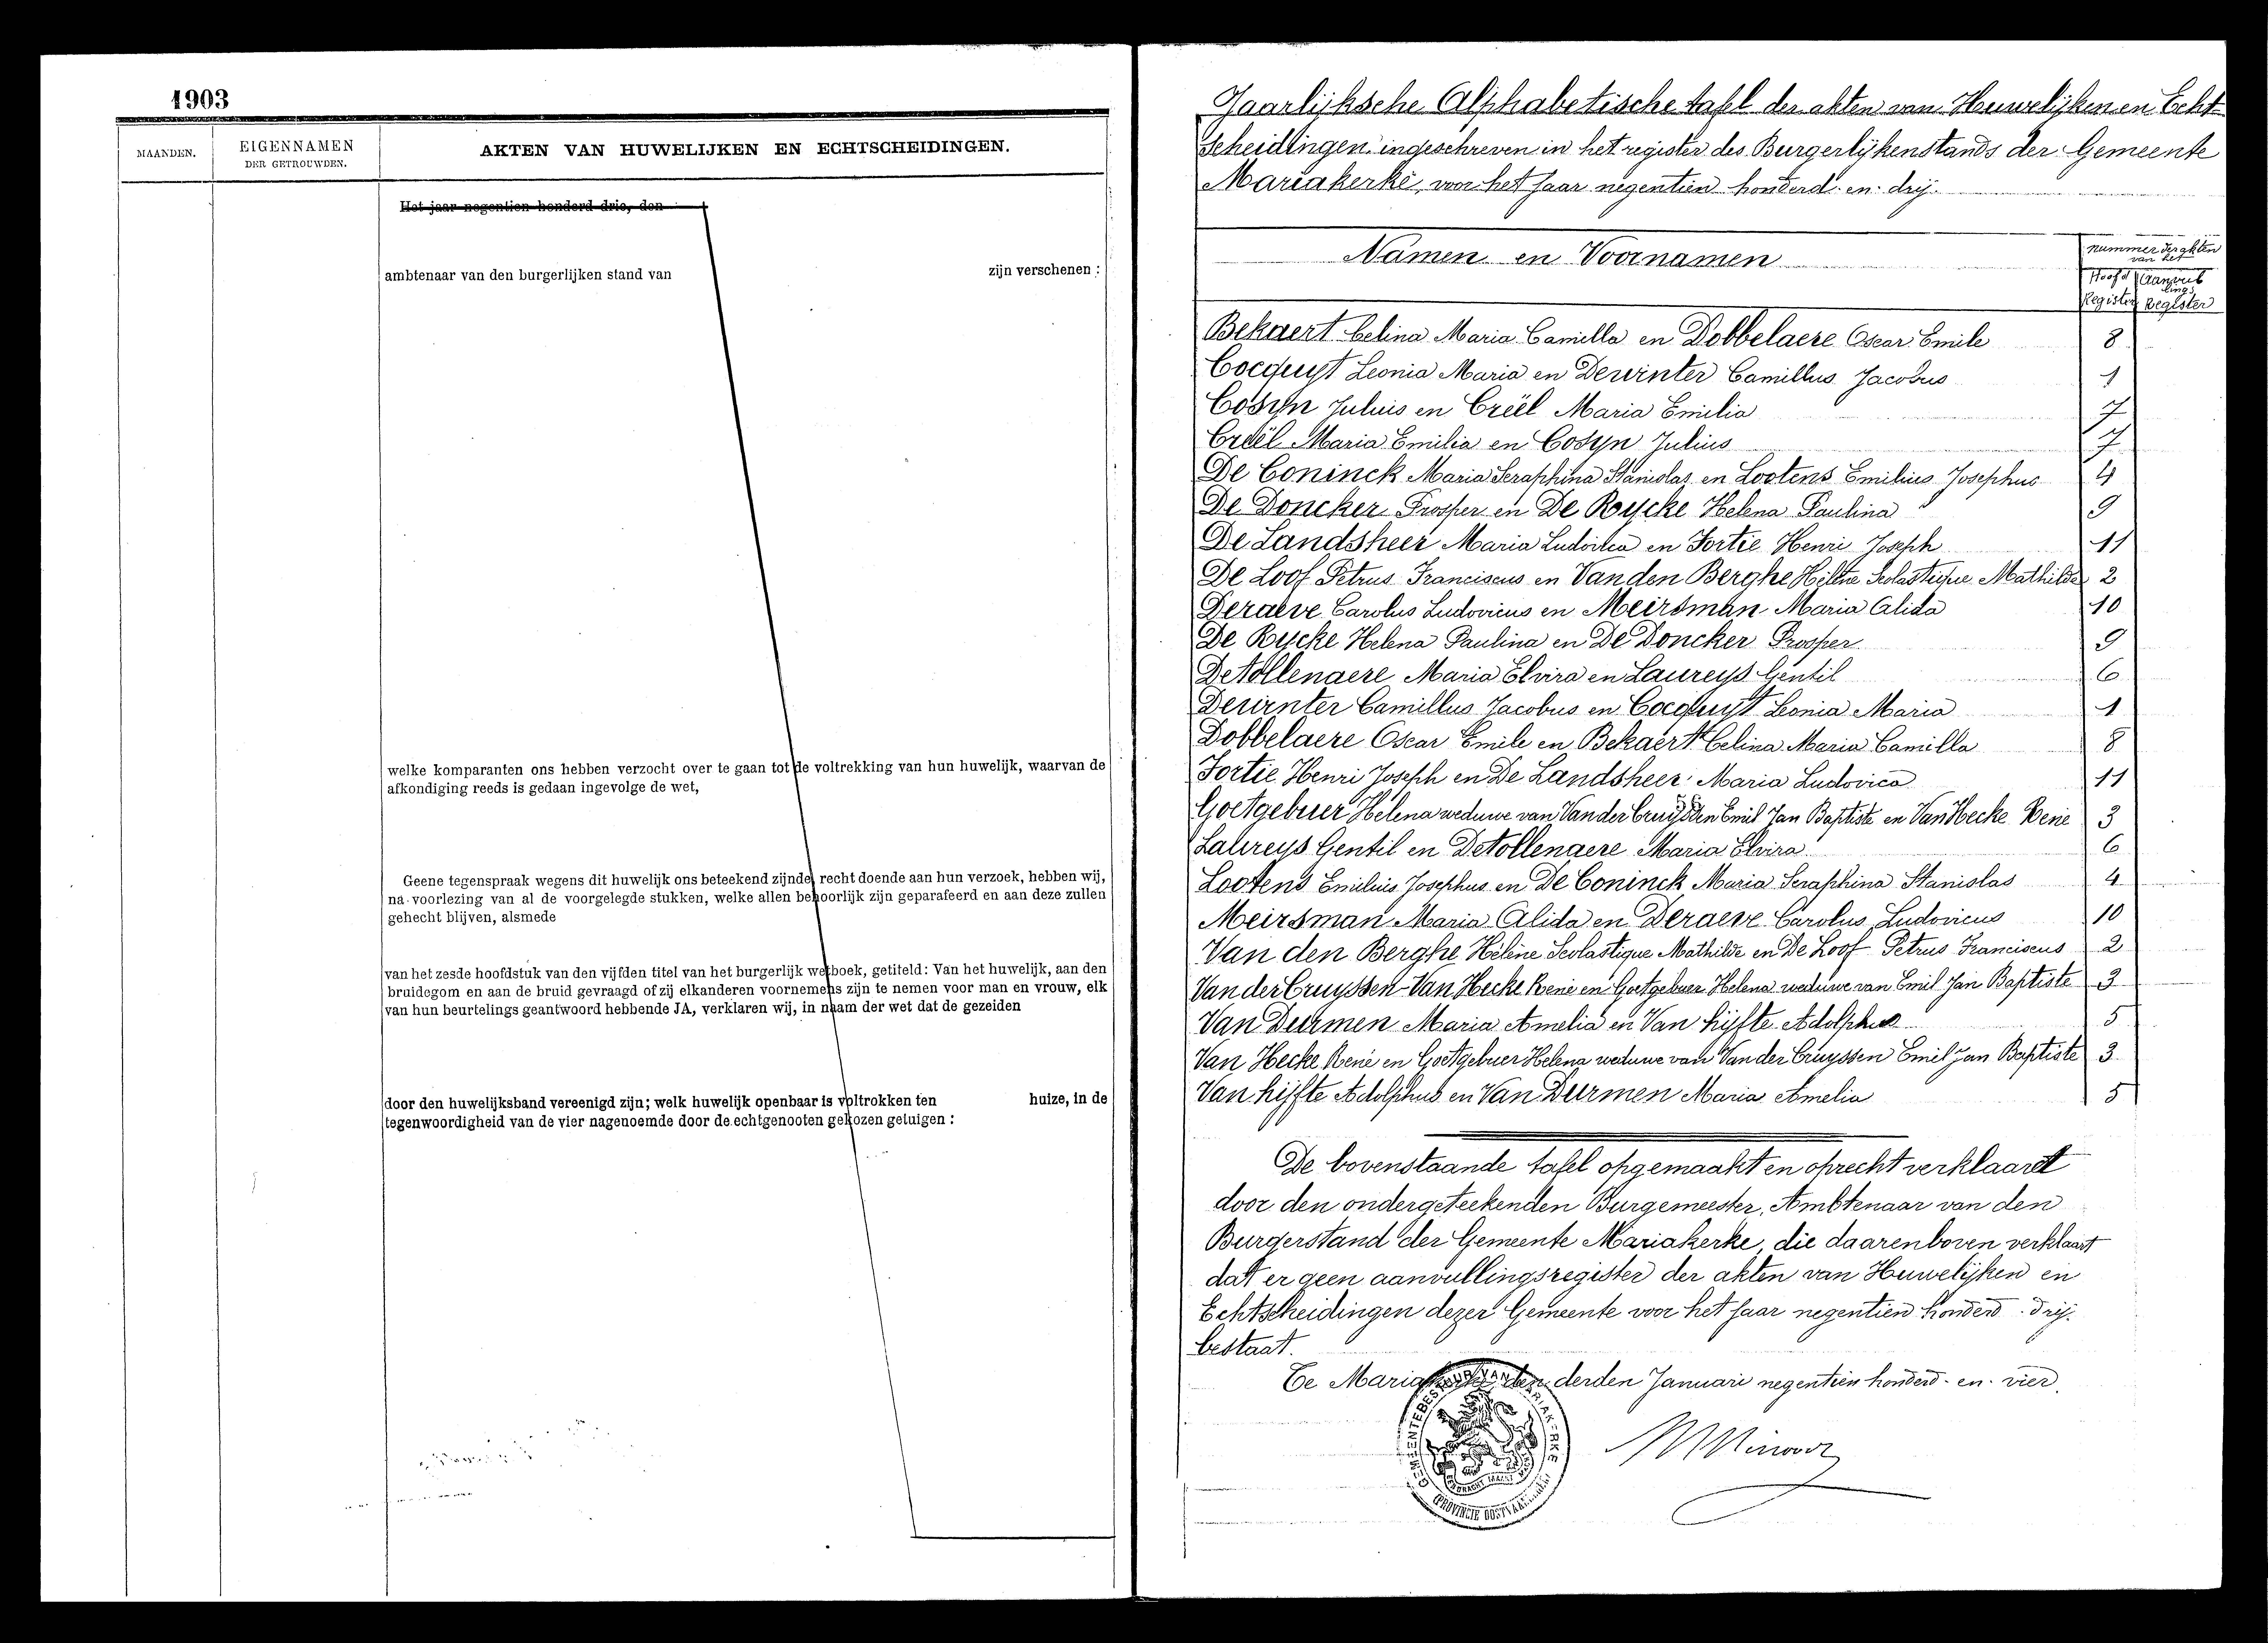 1903
MAANDEN.
EIGENNAMEN
DER GETROUWDEN.
AKTEN VAN HUWELIJKEN EN ECHTSCHEIDINGEN.
Het jaar negentien honderd drie, den
ambtenaar van den burgerlijken stand van zijn verschenen :
welke komparanten ons hebben verzocht over te gaan tot de voltrekking van hun huwelijk, waarvan de
afkondiging reeds is gedaan ingevolge de wet,
Geene tegenspraak wegens dit huwelijk ons beteekend zijnde, recht doende aan hun verzoek, hebben wij,
na voorlezing van al de voorgelegde stukken, welke allen behoorlijk zijn geparafeerd en aan deze zullen
gehecht blijven, alsmede
van het zesde hoofdstuk van den vijfden titel van het burgerlijk wetboek, getiteld: Van het huwelijk, aan den
bruidegom en aan de bruid gevraagd of zij elkanderen voornemens zijn te nemen voor man en vrouw, elk
van hun beurtelings geantwoord hebbende JA, verklaren wij, in naam der wet dat de gezeiden
door den huwelijksband vereenigd zijn; welk huwelijk openbaar is voltrokken ten huize, in de
tegenwoordigheid van de vier nagenoemde door de echtgenooten gekozen getuigen :
Jaarlijksche Alphabetische tafel der akten van Huwelijken en Echt-
scheidingen ingeschreven in het register des Burgerlijkenstands der Gemeente
Mariakerke, voor het jaar negentien honderd en drij.
Namen en Voornamen
nummer der akten
van het
Hoofd Aanvul
lings
Register Register
Bekaert Celina Maria Camilla en Dobbelaere Oscar Emile 8
Cocquyt Leonia Maria en Dewinter Camillus Jacobus 1
Cosyn Julius en Creël Maria Emilia 7
Creël Maria Emilia en Cosyn Julius 7
De Coninck Maria Seraphina Stanislas en Lootens Emilius Josephus 4
De Doncker Prosper en De Rycke Helena Paulina 9
De Landsheer Maria Ludovica en Fortie Henri Joseph 11
De Loof Petrus Franciscus en Van den Berghe Hélène Scolastique Mathilde 2
Deraeve Carolus Ludovicus en Meirsman Maria Alida 10
De Rycke Helena Paulina en De Doncker Prosper 9
Detollenaere Maria Elvira en Laureys Gentil 6
Dewinter Camillus Jacobus en Cocquyt Leonia Maria 1
Dobbelaere Oscar Emile en Bekaert Celina Maria Camilla 8
Fortie Henri Joseph en De Landsheer Maria Ludovica 11
Goetgebuer Helena weduwe van Van der Cruyssen Emil Jan Baptiste en Van Hecke René 3
Laureys Gentil en Detollenaere Maria Elvira 6
Lootens Emilius Josephus en De Coninck Maria Seraphina Stanislas 4
Meirsman Maria Alida en Deraeve Carolus Ludovicus 10
Van den Berghe Hélène Scolastique Mathilde en De Loof Petrus Franciscus 2
Van der Cruyssen-Van Hecke René en Goetgebuer Helena weduwe van Emil Jan Baptiste 3
Van Durmen Maria Amelia en Van hijfte Adolphus 5
Van Hecke René en Goetgebuer Helena weduwe van Van der Cruyssen Emil Jan Baptiste 3
Van hijfte Adolphus en Van Durmen Maria Amelia 5
De bovenstaande tafel opgemaakt en oprecht verklaard
door den ondergeteekenden Burgemeester, Ambtenaar van den
Burgerstand der Gemeente Mariakerke, die daarenboven verklaart
dat er geen aanvullingsregister der akten van Huwelijken en
Echtscheidingen dezer Gemeente voor het jaar negentien honderd drij.
bestaat.
Te Mariakerke, den derden Januari negentien honderd en vier.